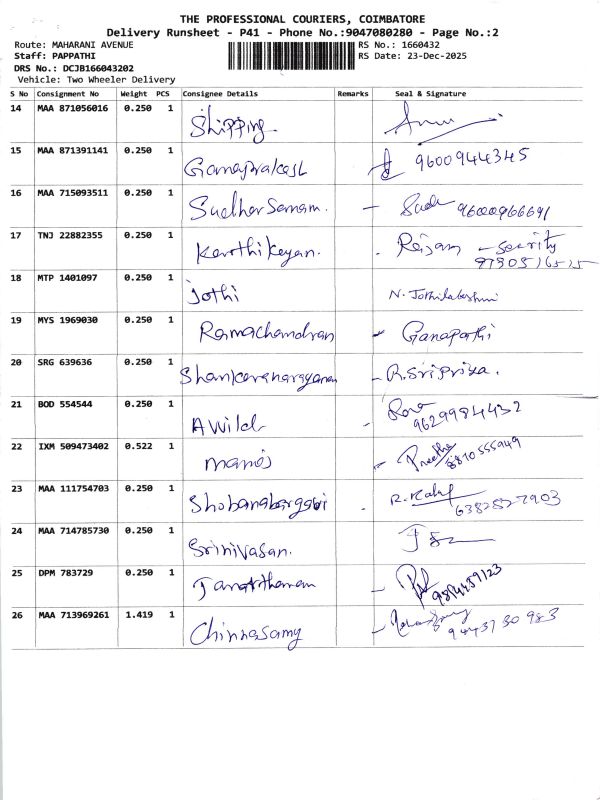 THE PROFESSIONAL COURIERS, COIMBATORE
Delivery Runsheet - P41 - Phone No.:9047080280 - Page No.:2
Route: MAHARANI AVENUE RS No.: 1660432
Staff: PAPPATHI RS Date: 23-Dec-2025
DRS No.: DCJB166043202
Vehicle: Two Wheeler Delivery
S No Consignment No Weight PCS Consignee Details Remarks Seal & Signature
14 MAA 871056016 0.250 1 Shipping
15 MAA 871391141 0.250 1 Ganaprakash 9600944345
16 MAA 715093511 0.250 1 Sudharsanam. - 9600966691
17 TNJ 22882355 0.250 1 Karthikeyan. Rajan - Security
18 MTP 1401097 0.250 1 Jothi N. Jothilakshmi
19 MYS 1969030 0.250 1 Ramachandran - Ganapathi
20 SRG 639636 0.250 1 Shankaranarayanan - R. Sripriya.
21 BOD 554544 0.250 1 9629984432
22 IXM 509473402 0.522 1 Manoj - Preetha 8870555949
23 MAA 111754703 0.250 1 R. 6382527903
24 MAA 714785730 0.250 1 Srinivasan.
25 DPM 783729 0.250 1 9894459123
26 MAA 713969261 1.419 1 Chinnasamy - 9443730983